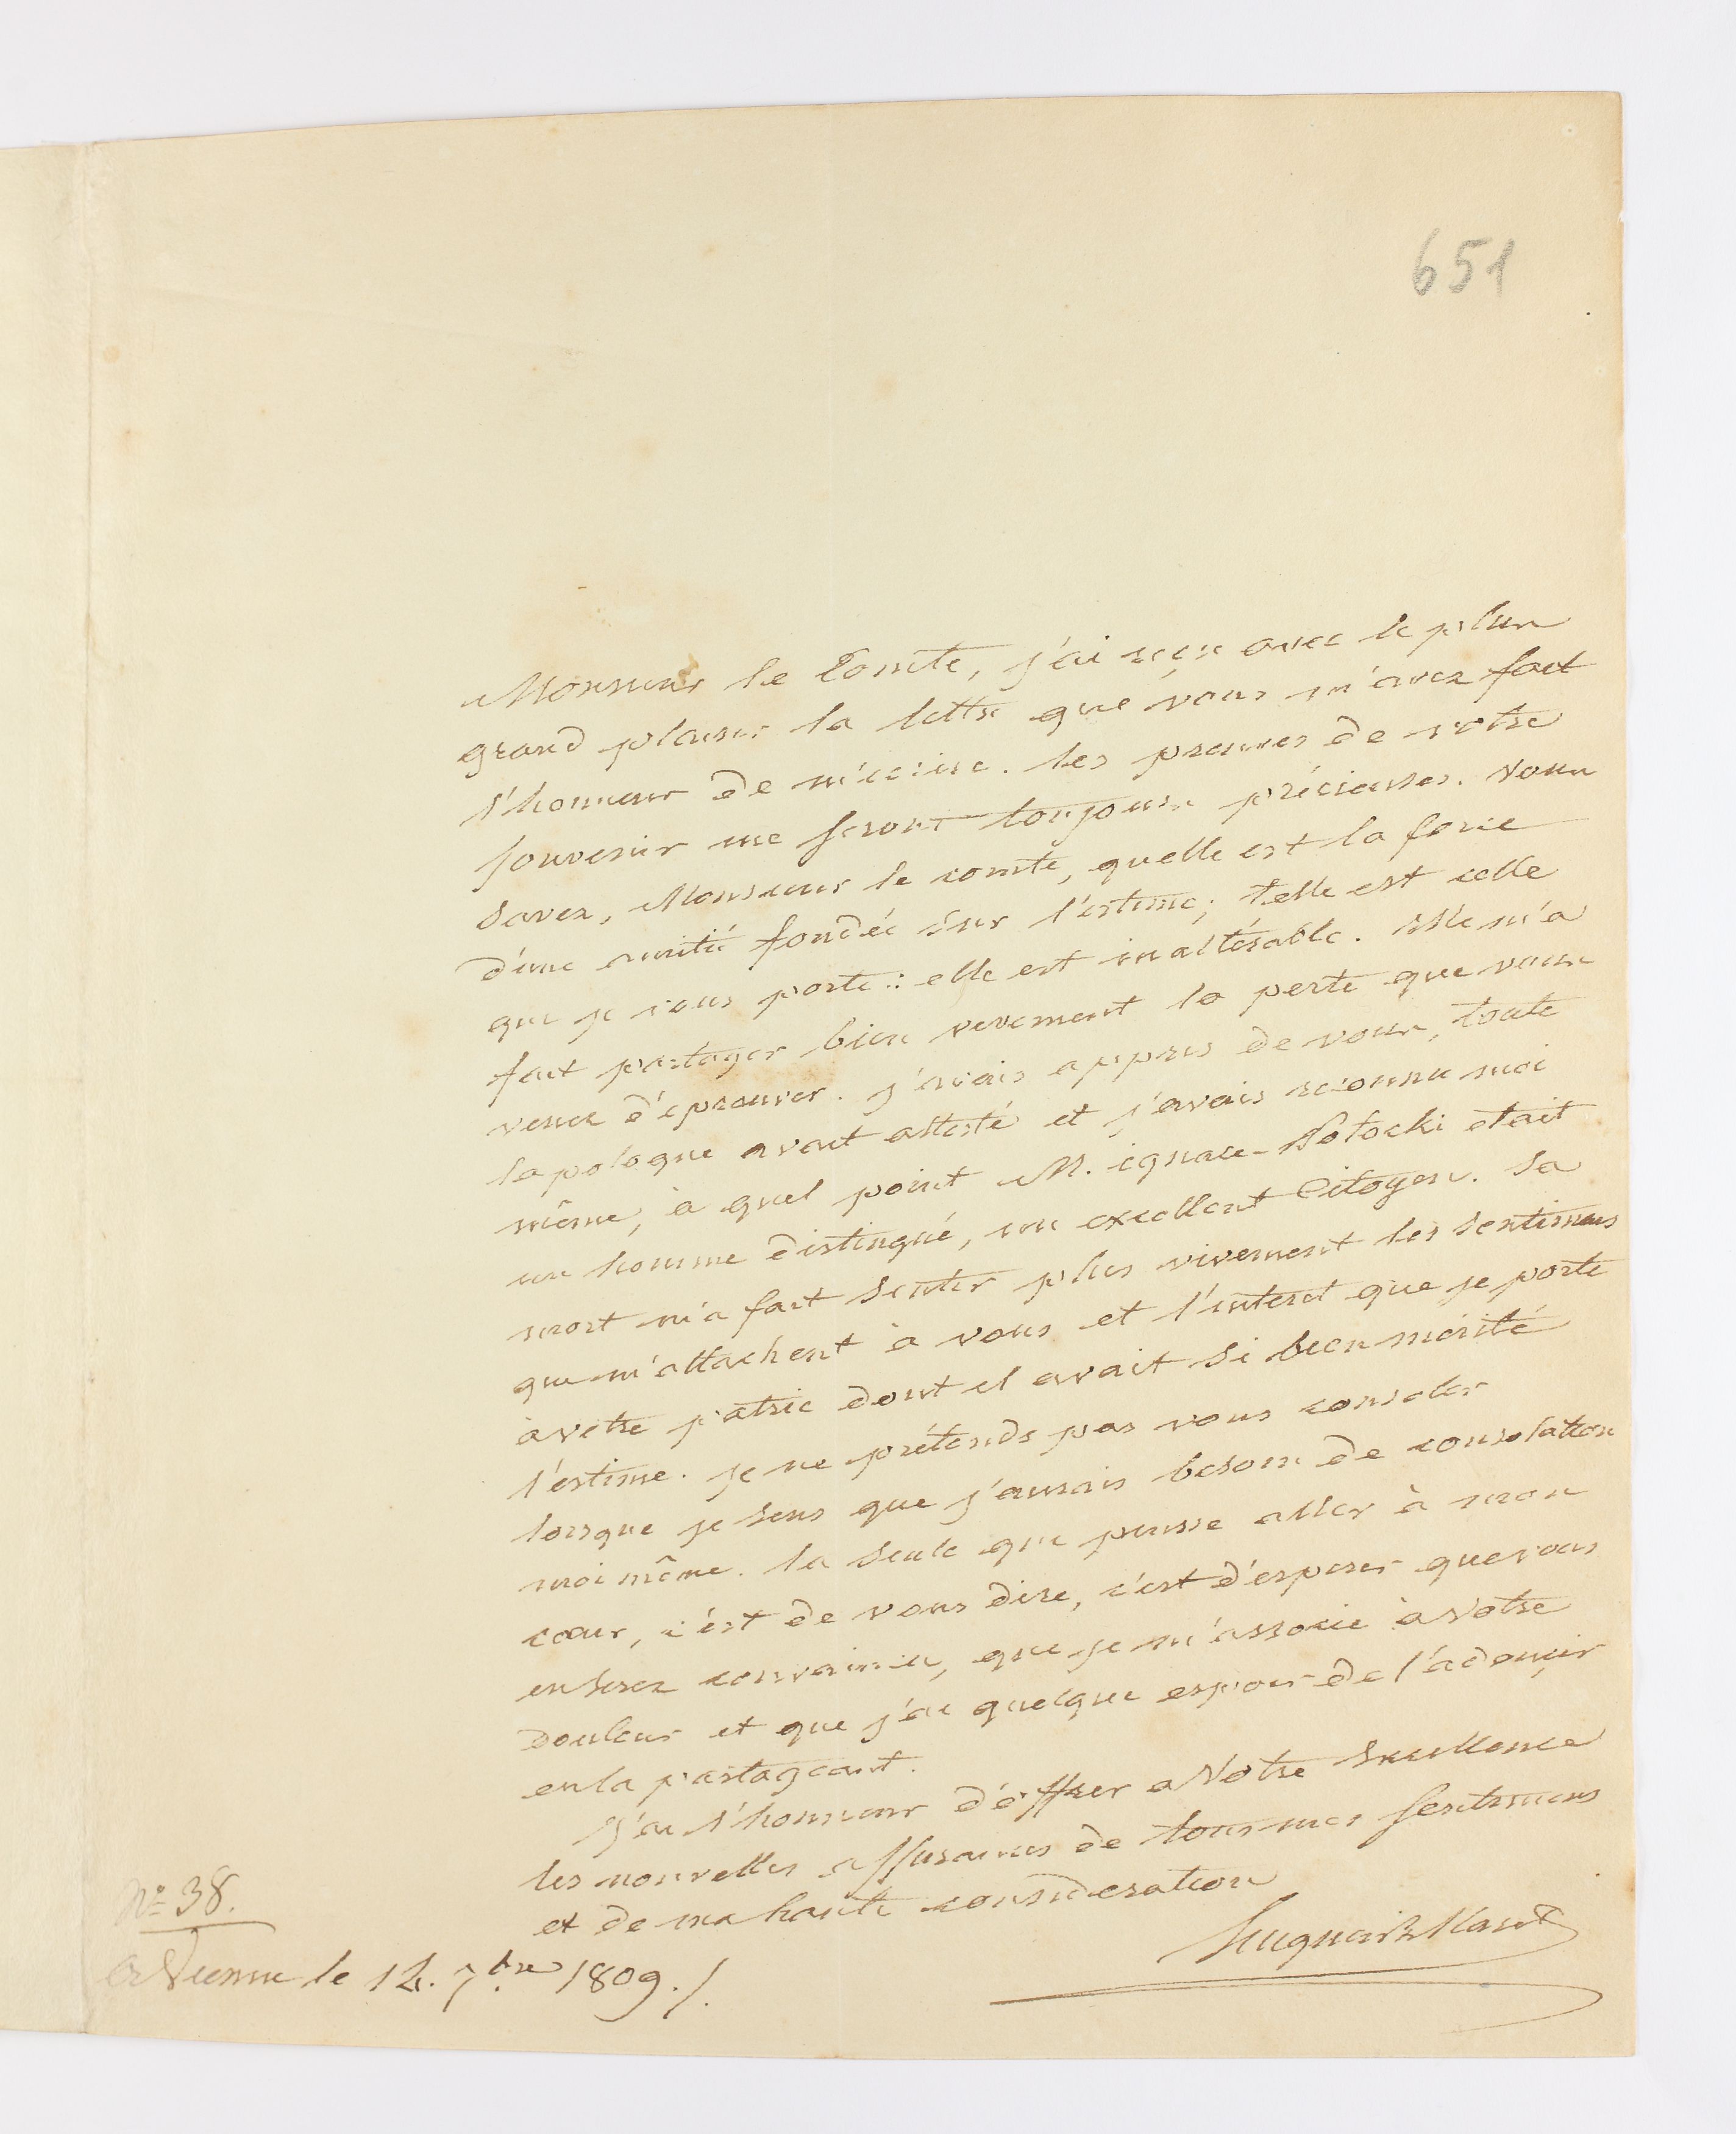 651
Monsieur le Comte, j'ai reçu avec le plus
grand plaisir la lettre que vous m'avez fait
l'honneur de m'écrire. les preuves de votre
souvenir me seront toujours précieuses. vous
savez, Monsieur le comte, quelle est la force
d'une amitié fondée sur l'estime; telle est celle
que je vous porte: elle est inaltérable. Elle m'a
fait partager bien vivement la perte que vous
venez d'éprouver. j'avais appris de vous, toute
la pologne avait attesté et j'avais reconnu moi
même, à quel point M. ignace Potocki était
un homme distingué, un excellent Citoyen. Sa
mort m'a fait sentir plus vivement les sentimens
qui m'attachent à vous et l'interet que je porte
à votre patrie dont il avait si bien mérité
l'estime. je ne prétends pas vous consoler
lorsque je sens que j'aurais besoin de consolation
moi même. la seule qui puisse aller à mon
cœur, c'est de vous dire, c'est d'esperer que vous
en serez convaincu, que je m'associe à votre
douleur et que j'ai quelque espoir de l'adouçir
en la partageant.
j'ai l'honneur d'offrir a Votre Excellence
les nouvelles assurances de tous mes sentimens
et de ma haute consideration
Hugues B. Maret
N° 38.
a Vienne le 12. 7bre 1809./.